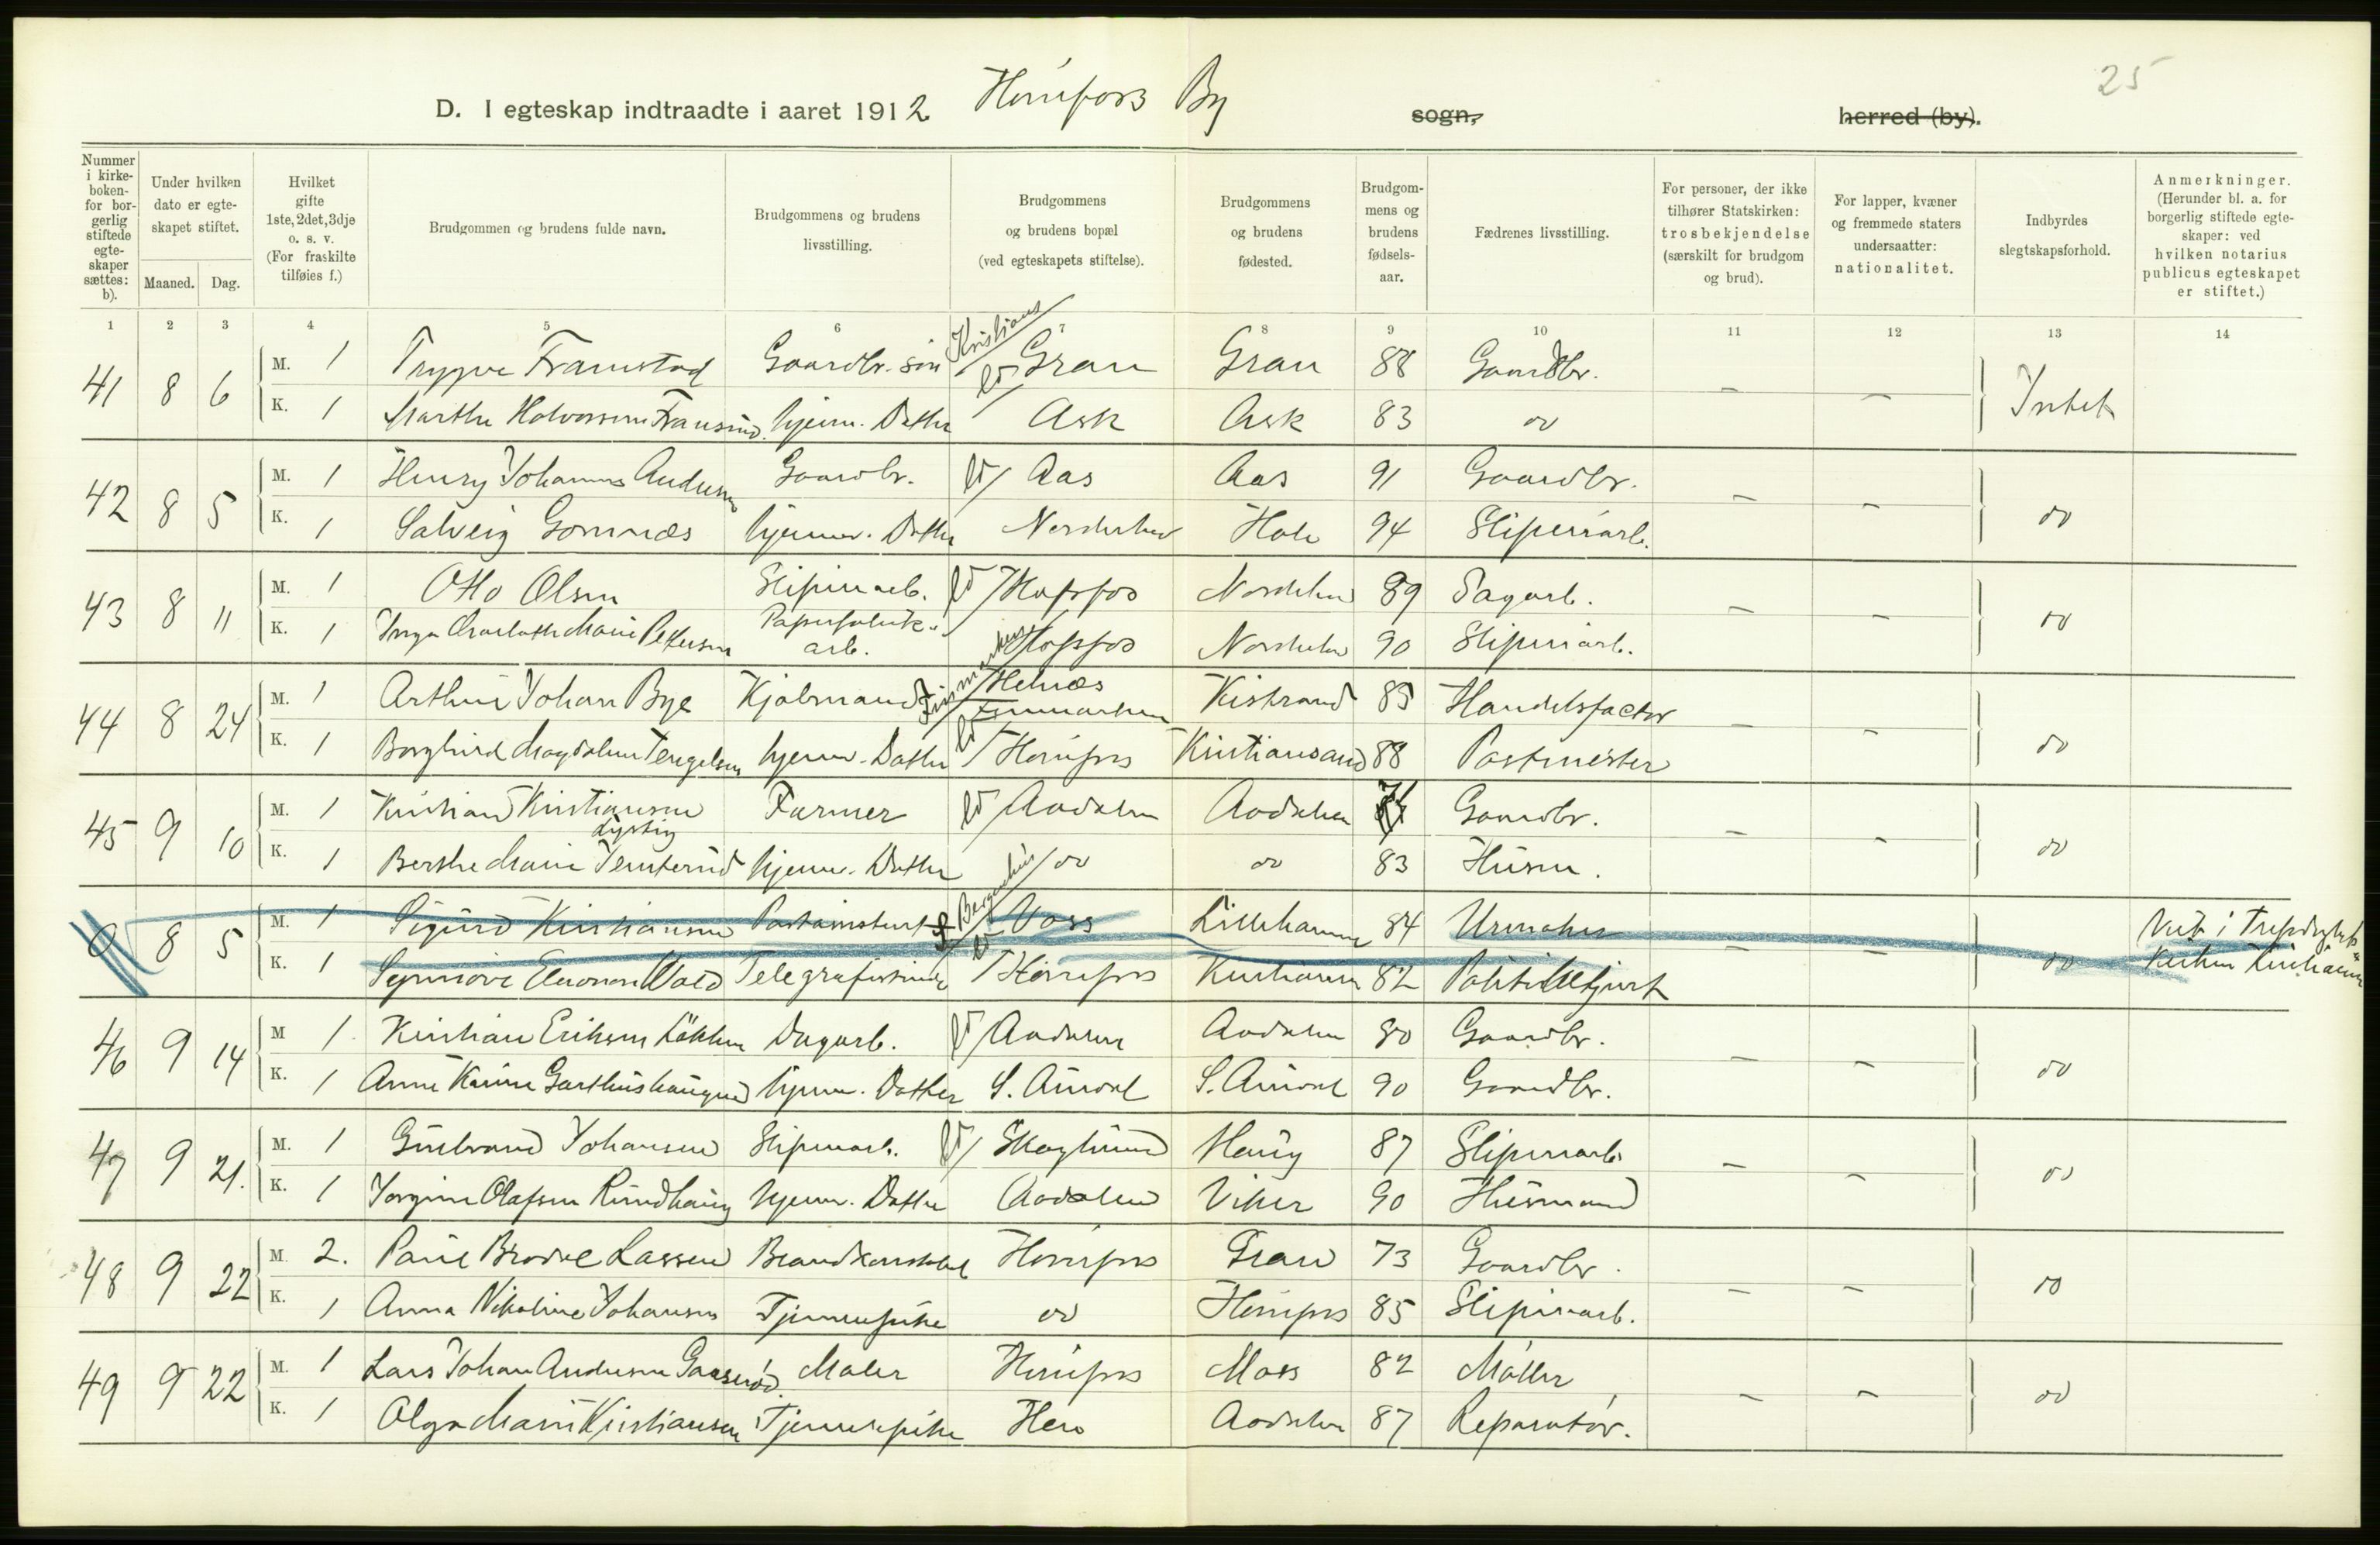 25
D. I egteskap indtraadte i aaret 1912 Hønefoss By sogn, herred (by).
Nummer i kirkeboken- for borgerlig stiftede egteskaper sættes: b).
Under hvilken dato er egteskapet stiftet.
Maaned. Dag.
Hvilket gifte 1ste, 2det, 3dje o. s. v. (For fraskilte tilføies f.)
Brudgommen og brudens fulde navn.
Brudgommens og brudens livsstilling.
Brudgommens og brudens bopæl (ved egteskapets stiftelse).
Brudgommens og brudens fødested.
Brudgommens og brudens fødselsaar.
Fædrenes livsstilling.
For personer, der ikke tilhører Statskirken: trosbekjendelse (særskilt for brudgom og brud).
For lapper, kvæner og fremmede staters undersaatter: nationalitet.
Indbyrdes slegtskapsforhold.
Anmerkninger. (Herunder bl. a. for borgerlig stiftede egteskaper: ved hvilken notarius publicus egteskapet er stiftet.)
1 2 3 4 5 6 7 8 9 10 11 12 13 14
Kristians
41 8 6 M. 1 Trygve Framstad Gaardbr. søn Gran Gran 88 Gaardbr. — — Intet
K. 1 Marthe Halvorsen Fransrud hjem. Datter Ask Ask 83 do
42 8 5 M. 1 Henry Johannes Andersen Gaardbr. Aas Aas 91 Gaardbr. — — do
K. 1 Solveig Gomnæs hjemv. Datter Norderhov Hole 94 Sliperiarb.
43 8 11 M. 1 Otto Olsen Sliperiarb. Hofsfos Norderhov 89 Sagarb. — — do
K. 1 Inga Charlotte Marie Pettersen Papirfabrik-arb. Hofsfos Norderhov 90 Sliperiarb.
44 8 24 M. 1 Arthur Johan Bye Kjøbmand Helnæs Finmarken Kistrand 85 Handelsfactor — — do
K. 1 Borghild Magdalene Tengelsen hjemv. Datter Hønefos Kristiansand 88 Postmester
45 9 10 M. 1 Kristian Kristiansen Lysting Farmer Aadalen Aadalen Gaardbr. — — do
K. 1 Berthe Marie Tensterud hjemv. Datter do do 83 Husm.
Bergenhus
0 8 5 M. 1 Sigurd Kristiansen Postassistent Voss Lillehammer 84 Urmaker — — do
K. 1 Synnøve Eleonora Wold Telegrafistinde Hønefos Kristiania 82 Politibetjent
46 9 14 M 1 Kristian Eriksen Løkken Dagarb. Aadalen Aadalen 80 Gaardbr. — — do
K. 1 Anne Karine Garthushaugen hjemv. Datter S. Aurdal S. Aurdal 90 Gaardbr.
47 9 21. M. 1 Gulbrand Johansen Sliperiarb. Skoglund Haug 87 Sliperiarb. — — do
K. 1 Jorgine Olafsen Rundhaug hjemv. Datter Aadalen Viker 90 Husmand
48 9 22 M. 2. Paul Brodal Lassen Brandkonstabel Hønefos Gran 73 Gaardbr. — — do
K. 1 Anna Nikoline Johansen Tjenestepike do Hønefos 85 Sliperiarb.
49 9 22 M. 1 Lars Johan Andersen Gaaserød Maler Hønefos Moss 82 Møller — — do
K. 1 Olga Marie Kristiansen Tjenestepike Hen Aadalen 87 Reparatør.